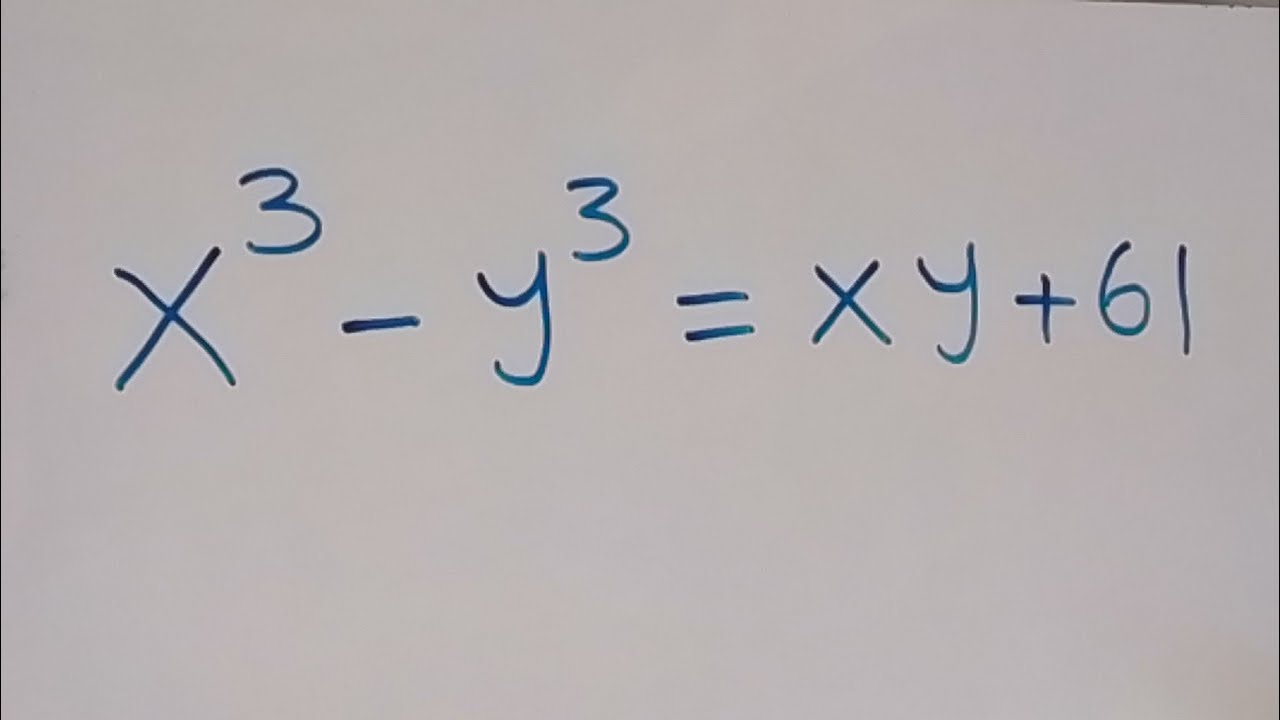 x³ - y³ = xy + 61